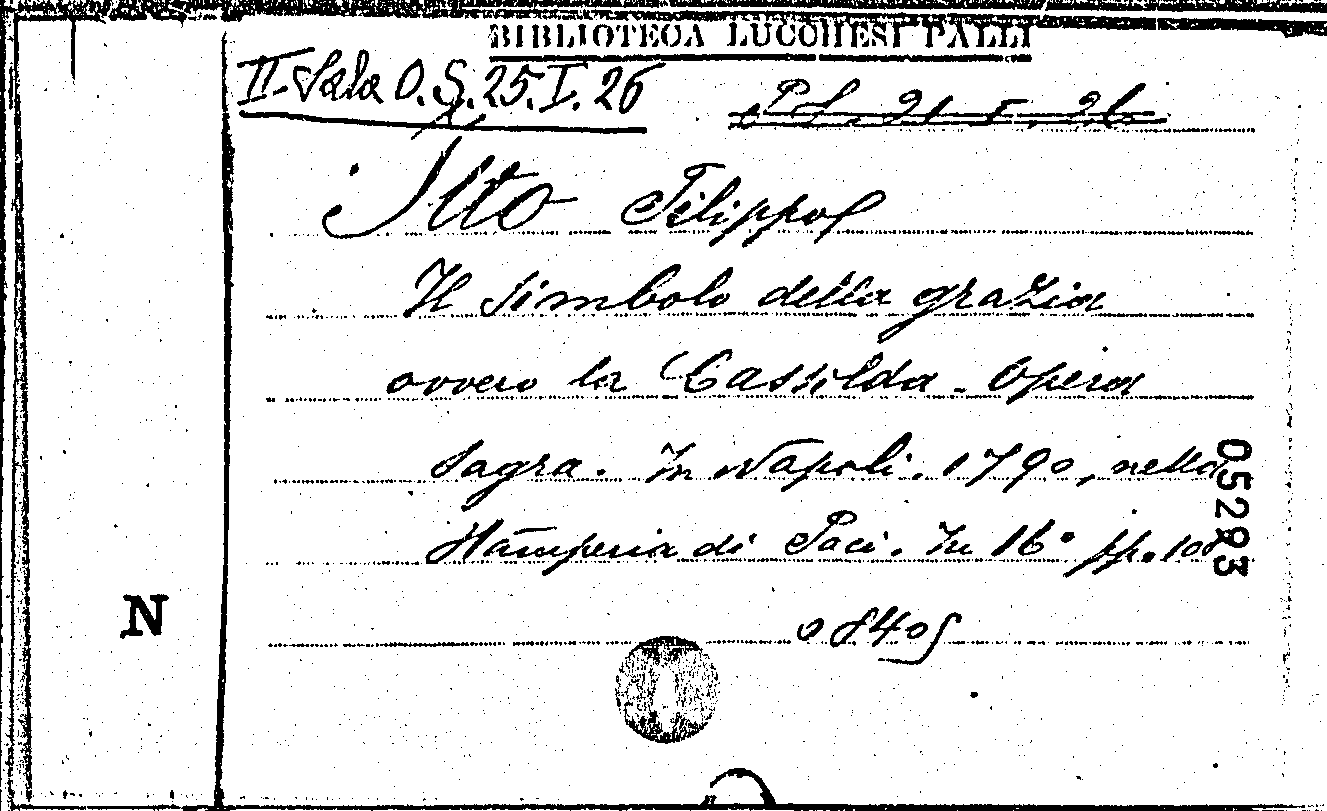 BIBLIOTECA LUCCHESI PALLI
II Sala O.S. 25. I. 26
Ilto Filippo
Il simbolo della grazia
ovvero la Cassilda. Opera
sagra. In Napoli. 1790, nella
Stamperia di Paci. In 16° pp. 108
05283
N